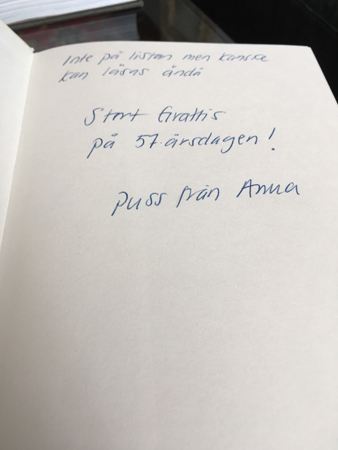 Inte på listan men kanske
kan läsas ändå
Stort Grattis
på 57-årsdagen!
puss från Anna